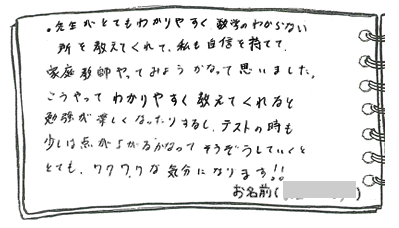 ・先生がとてもわかりやすく数学のわからない
所を教えてくれて、私も自信を持てて、
家庭教師やってみようかなって思いました。
こうやってわかりやすく教えてくれると
勉強が楽しくなったりするし、テストの時も
少しは点が上がるかなってそうぞうしていくと
とても、ワクワクな気分になります!!
お名前(
)